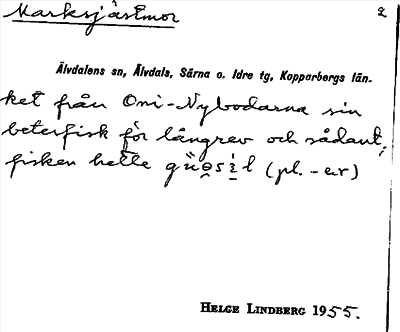 Marksjåstmor 2
Älvdalens sn, Älvdals, Särna o. Idre tg, Kopparbergs län.
ket från Oni-Nybodarna sin
beterfisk för långrev och sådant;
fisken hette (pl. -er)
HELGE LINDBERG 1955.